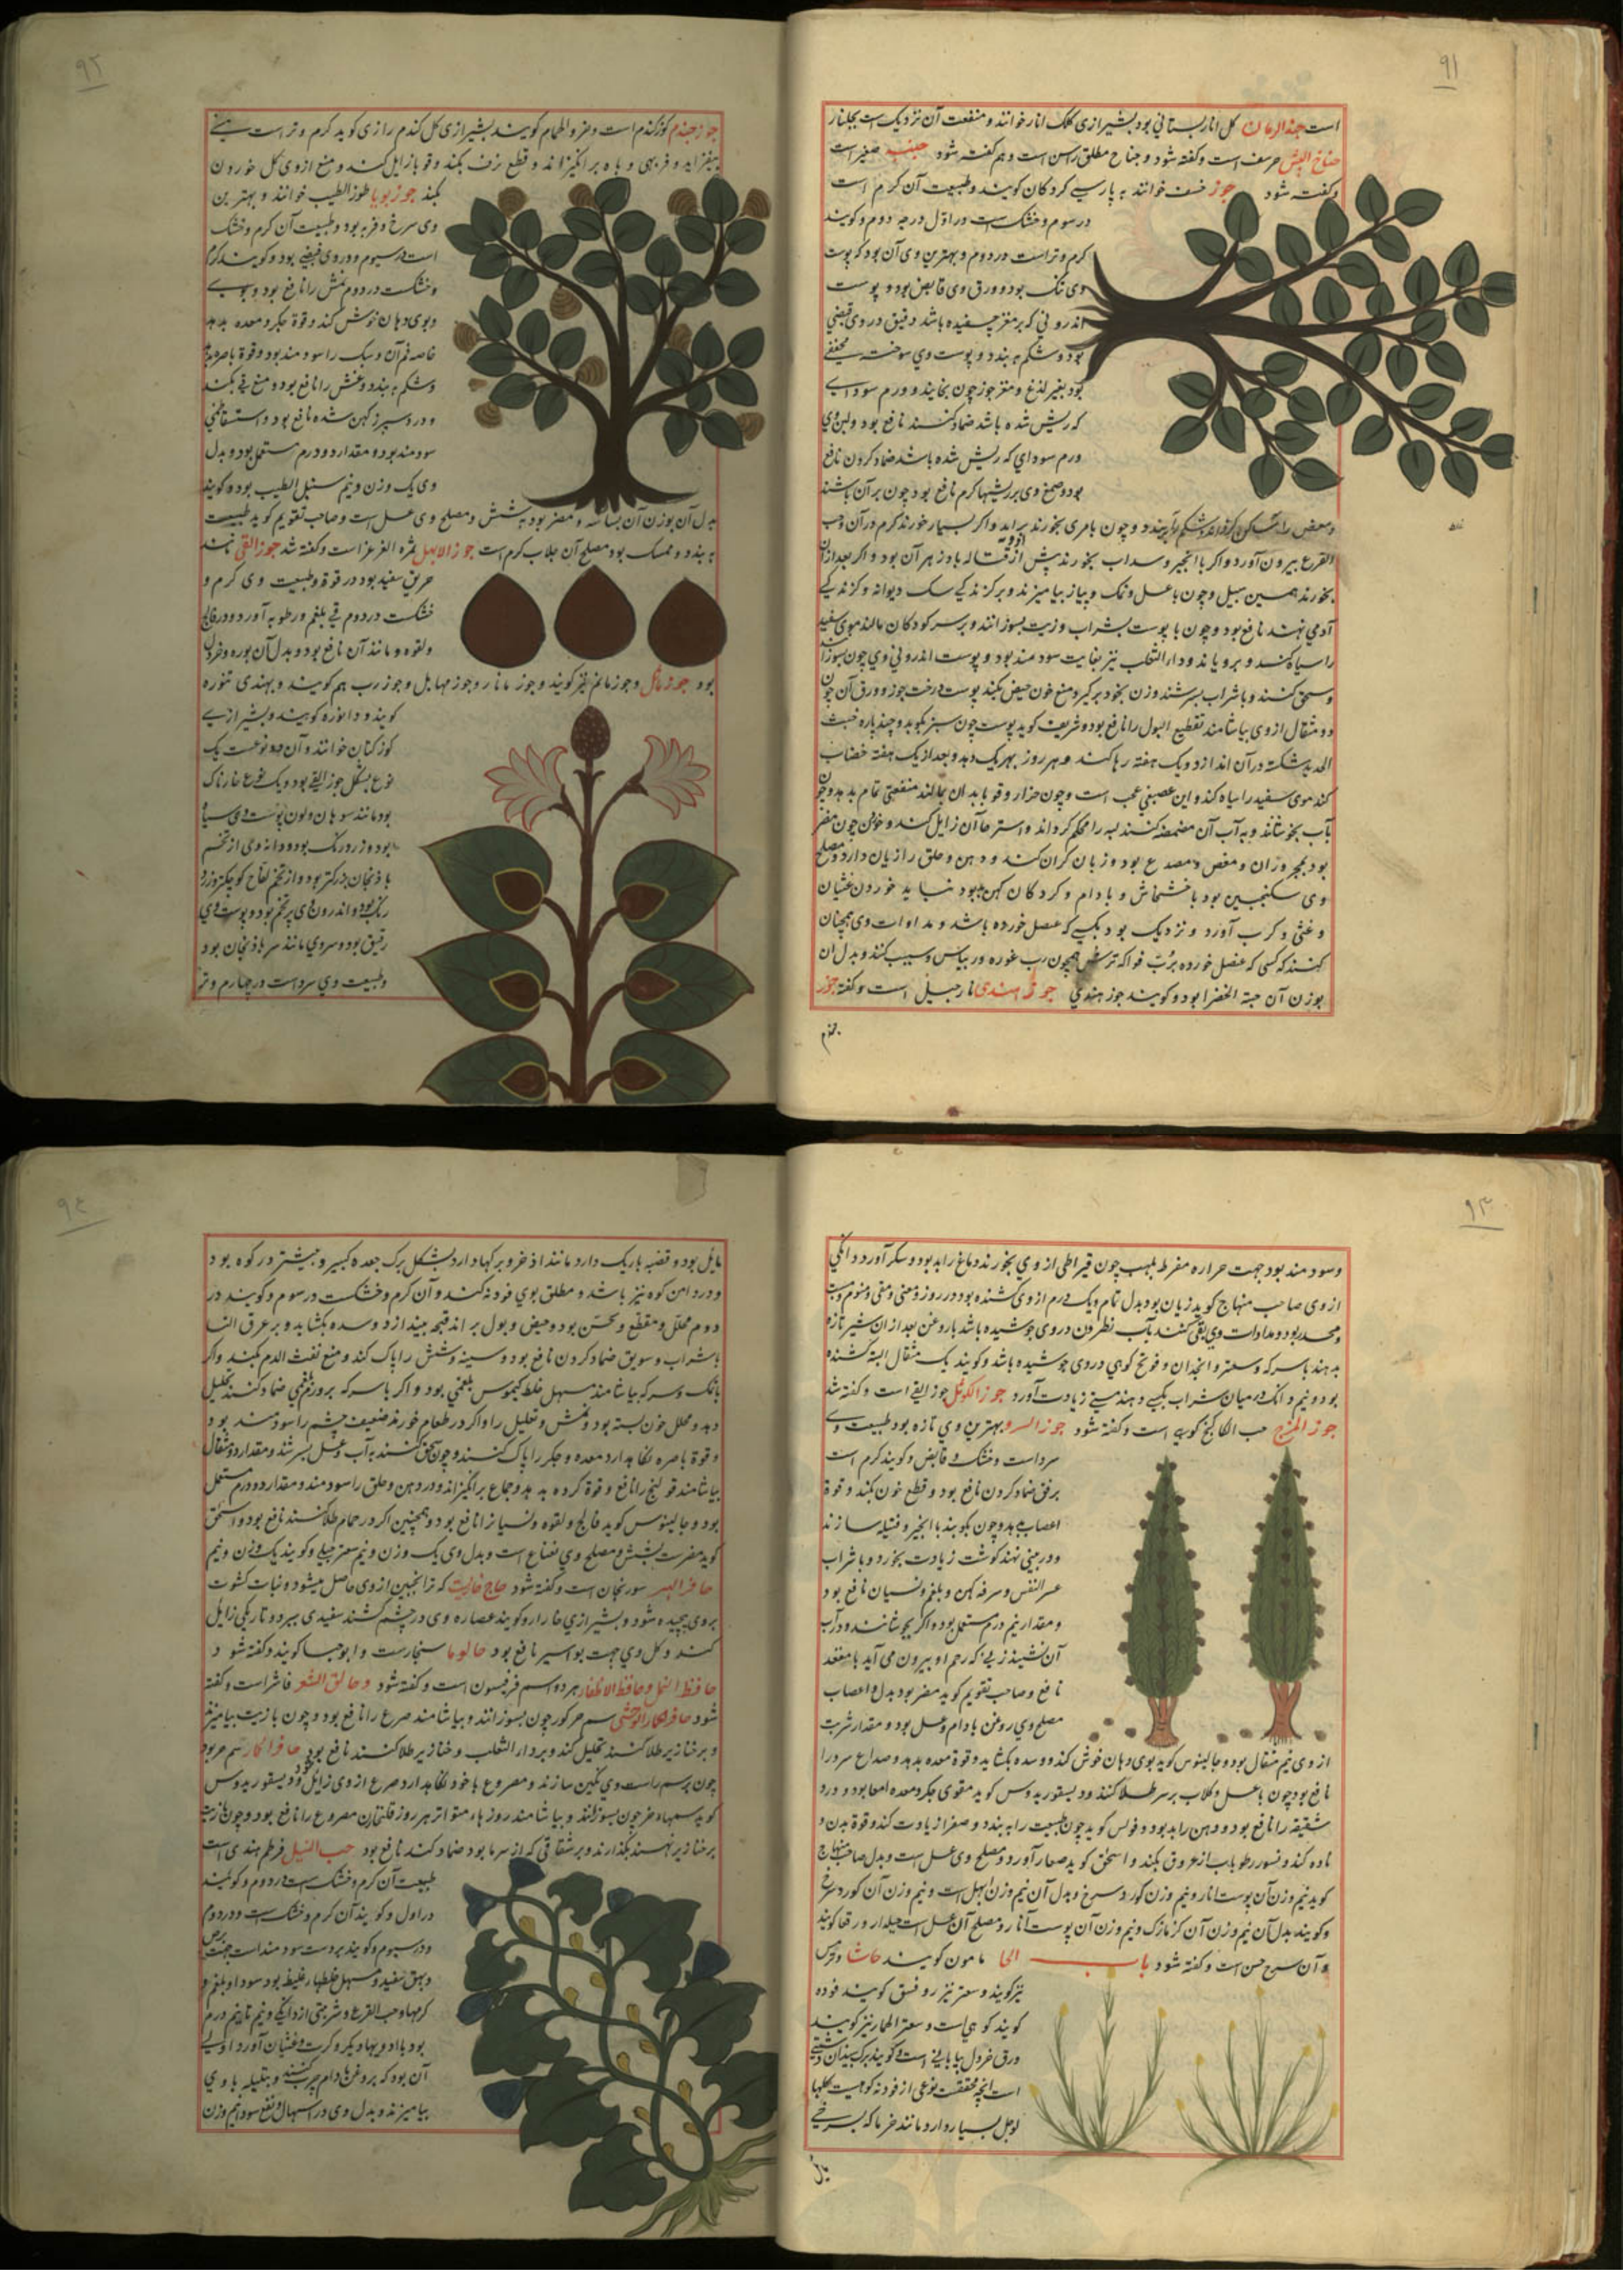 ۹۱
است جنذ الرمان کل انار بستانی بود بشیرازی کلک انار خوانند و منفعت آن نزدیک است بجلنار
حرف است وکفته شود و جناح مطلق راسن است و هم کفته شود
وکفته شود جوز خسف خوانند به پارسی کردکان کویند و طبیعت آن کرم است
در سوم و خشک است در اول درجه دوم و کویند
کرم و تر است در دوم و بهترین وی آن بود که پوست
وی تنک بود و ورق وی قابض بود و پوست
اندرونی که بر مغز چسفیده باشد رقیق در وی قبضی
بود و شکم به بندد و پوست وی سوخته مجففی
بود بغیر لذغ و مغز جوز چون بخایند و ورم سودایی
که ریش شده باشد ضماد کنند نافع بود
ورم سودای که ریش شده باشد ضماد کردن نافع
بود و صمغ وی بر ریشهاء کرم نافع بود چون بر آن پاشند
و چون بامری بخورند و اکر بسیار خورند کرم دراز و حب
القرع بیرون آورد و اکر با انجیر و سداب بخورند پیش از ادویه قتاله پادزهر آن بود و اکر بعد از آن
بخورند همین سبیل و چون با عسل و نمک و پیاز بیامیزند و بر کزندکی سک دیوانه و کزندکی
آدمی نهند نافع بود و چون با پوست بشراب و زیت بسوزانند و بر سر کودکان مالند موی سفید
را سیاه کند و برویاند و دار الثعلب نیز بغایت سودمند بود و پوست اندرونی وی چون بسوزانند
و سحق کنند و با شراب بسرشند و زن بخود برکیرد منع خون حیض بکند پوست درخت جوز و ورق آن چون
دو مثقال از وی بیاشامند تقطیع البول را نافع بود و شریف کوید پوست چون سبز بکوبد و چند پاره خبث
الحدید شکسته در آن اندازد و یک هفته رها کند و هر روز بهریک دهد و بعد از یک هفته خضاب
کند موی سفید را سیاه کند و این عجب است و چون حزاز و قوبا بدان بمالند منفعتی تمام بدهد و چون
بآب بجوشانند و به آب آن مضمضه کنند لثه را محکم کرداند و استرخا آن زایل کند و
بود و مصدع بود و زبان کران کند و دهن و حلق را زیان دارد و مصلح
وی سکنجبین بود یا خشخاش و بادام و کردکان کهن نباید خوردن غثیان
و غشی و کرب آورد و نزدیک بود بکسی که عنصل خورده باشد و مداوات وی همچنان
کنند که کسی که عنصل خورده برب فواکه ترش همچون رب غوره و ریباس و سیب کنند و بدل آن
بوزن آن حبة الخضرا بود و کویند جوز هندی جوز هندی نارجیل است و کفته جوز
۹۲
جوز جندم کوز کندم است و خرو الحمام کویند بشیرازی کل کندم رازی کوید کرم و تر است منی
بیفزاید و فربهی و باه برانکیزاند و قطع نزف بکند و قوبا زایل کند و منع آرزوی کل خوردن
بکند جوز بویا جوز الطیب خوانند و بهترین
وی سرخ و فربه بود و طبیعت آن کرم و خشک
است در سیوم و در وی قبضی بود و کویند کرم
و خشکست در دوم نمش را نافع بود
و بوی دهان خوش کند و قوة جکر و معده بدهد
خاصه فم آن و سبل را سودمند بود و قوة باصره بدهد
و شکم به بندد و غشی را نافع بود و منع قی بکند
و درد سپرز کهن شده نافع بود و استسقا لحمی
سودمند بود و مقدار دو درم مستعمل بود و بدل
وی یک وزن و نیم سنبل الطیب بود و کویند
بدل آن بوزن آن بسباسه و مضر بود بشش و مصلح وی عسل است و صاحب تقویم کوید طبیعت
به بندد و ممسک بود مصلح آن جلاب کرم است جوز الابهل ثمره العرعر است و کفته شد جوز القی مانند
خربق سفید بود در قوة و طبیعت وی کرم و
خشکست در دوم قی بلغم و رطوبه آورد و در فالج
و لقوه و مانند آن نافع بود و بدل آن بوره و خردل
بود جوز ماثل و جوز ماثم نیز کویند و جوز مانا و جوز مهابل و جوز رب هم کویند و بهندی تنوره
کویند و داتوره کویند و بشیرازی
کوز کنان خوانند و آن دو نوعست یک
نوع بشکل جوز القی بود و یک نوع خارناک
بود مانند سوهان ولون پوست وی سیاه
بود و زرد رنک بود و دانه وی از تخم
بادنجان بزرکتر بود و از تخم لفاح کوچکتر و زرد
رنک بود و اندرون وی پر تخم بود و پوست وی
رقیق بود و سر وی مانند سر بادنجان بود
و طبیعت وی سرد است در چهارم و تر
۹۳
وسودمند بود جهت حراره مفرط ملهب چون قیراطی از وی بخورند دماغ را بد بود و سکر آورد و دانکی
از وی صاحب منهاج کوید زیان بود بدل تمام و یک درم از وی کشنده بود در روز و مغثی و مقی و منوم و مسبت
و مخدر بود و مداوات وی بقی کنند بآب نطرون در وی جوشیده باشد با روغن بعد از آن شیر تازه
بدهند با سرکه و سعتر و انجدان و فودنج کوهی در وی جوشیده باشد و کویند یک مثقال البته کشنده
بود و نیم دانک در میان شراب بکسی دهند مستی زیادت آورد جوز الکوثل جوز القی است و کفته شد
جوز المرج حب الکاکنج کوهی است و کفته شود جوز السرو بهترین وی تازه بود طبیعت وی
سرد است و خشک و قابض و کویند کرم است
برفق ضماد کردن نافع بود و قطع خون بکند و قوة
اعصاب بدهد و چون بکوبند با انجیر و فتیله سازند
و در بینی نهند کوشت زیادت بخورد و با شراب
عسر النفس و سرفه کهن و بلغم و نسیان نافع بود
و مقدار نیم درم مستعمل بود و اکر بجوشانند و در آب
آن نشیند زنی که رحم او بیرون می آید یا مقعد
نافع و صاحب تقویم کوید مضر بود بدل و اعصاب
مصلح وی روغن بادام و عسل بود و مقدار شربت
از وی نیم مثقال بود و جالینوس کوید بوی دهان خوش کند و سده بکشاید و قوة معده بدهد و صداع سرد را
نافع بود چون با عسل و کلاب بر سر طلا کنند و دیسقوریدوس کوید مقوی جکر و معده و امعا بود و درد
شقیقه را نافع بود و دهن را بد بود و فولس کوید چون طبیعت را به بندد و صفرا زیادت کند و قوة بدن
کند و رطوبات از عروق بکند و اسحق کوید صداع آورد و مصلح وی عسل است و بدل صاحب منهاج
کوید نیم وزن آن پوست انار و نیم وزن کورد سرخ و بدل آن نیم وزن ابهل است و نیم وزن آن کورد سرخ
و کویند بدل آن نیم وزن آن کزمازک و نیم وزن آن پوست انار و مصلح آن عسل است
و آن سرخ حسن است و کفته شود باب الحا حاشا
نیز کویند و سعتر نیز
کویند کوهی است و سعتر الحمار نیز کویند
ورق خردل بیابانی است و کویند برک سپندان دشتی
است آنچه محققست نوعی از فودنه کوهیست
بسیار دارد مانند خرما که بسرخی
مایل
۹۴
مایل بود و قضبه باریک دارد مانند اذخر و برکها دارد بشکل برک جعده کبیر و بیشتر در کوه بود
و در دامن کوه نیز باشد و مطلق بوی فودنه کند و آن کرم و خشکست در سوم و کویند در
دوم محلل و مقطع و مسخن بود و حیض و بول براند و بچه بیندازد و سده بکشاید و بر عرق النسا
با شراب و سویق ضماد کردن نافع بود و سینه و شش را پاک کند و منع نفث الدم بکند و اکر
با نمک و سرکه بیاشامند مسهل خلط کیموس بلغمی بود و اکر با سرکه بر ورم بلغمی ضماد کنند تحلیل
دهد و محلل خون بسته بود و نمش و ثآلیل را و اکر در طعام خورند ضعیف چشم را سودمند بود
و قوة باصره نکاه دارد و معده و جکر را پاک کنند و چون سحق کنند به آب و عسل بسرشند و مقدار دو مثقال
بیاشامند قولنج را نافع و قوة کرده بدهد و جماع برانکیزاند و درد دهن و حلق را سودمند و مقدار دو درم مستعمل
بود و جالینوس کوید فالج و لقوه و نسیانرا نافع بود و همچنین اکر در حمام طلا کنند نافع بود و اسحق
کوید مضرست بشش و مصلح وی نعناع است و بدل وی یک وزن و نیم سعتر جبلی و کویند یک وزن و نیم
حافر المهر سورنجان است و کفته شود حاج که ترانجبین از وی حاصل میشود و نبات کشوث
بروی پیچیده شود و بشیرازی خارارو کویند عصاره وی در چشم کشند سفیدی ببرد و تاریکی زایل
کند و کل وی جهت بواسیر نافع بود حالوما سنجارست و ابوحلسا کویند و کفته شود
حافظ النحل و حافظ الاطفار هر دو اسم فرفیسون است و کفته شود و حالق الشعر فاشرا است و کفته
شود حافر الحمار الوحشی سم خر کور چون بسوزانند و بیاشامند صرع را نافع بود و چون با زیت بیامیزند
و بر خنازیر طلا کنند تحلیل کند و بر دار الثعلب و خنازیر طلا کنند نافع بود حافر الحمار سم خر بود
چون از سم راست وی نکین سازند و مصروع با خود نکاه دارد صرع از وی زایل شود و دیسقوریدوس
کوید سمهاء خر چون بسوزانند و بیاشامند روزهاء متواتر هر روز فلنجان مصروع را نافع بود و چون با زیت
بر خنازیر نهند بکذارند و بر شقاقی که از سرما بود ضماد کنند نافع بود حب النیل قرطم هندی است
طبیعت آن کرم و خشک است در دوم و کویند
در اول و کویند آن کرم و خشک است در دوم
و در سیوم و کویند سرد است سودمند است جهت برص
و بهق سفید و مسهل خلطهاء غلیظ بود سودا و بلغم و
کرمها و حب القرع و شربتی از دانکی و نیم تا نیم درم
بود با ادویهاء دیکر و کرب و غثیان آورد و اولی
آن بود که بروغن بادام چرب کنند و بهلیله با وی
بیامیزند و بدل وی در اسهال و نفع سودا هم وزن